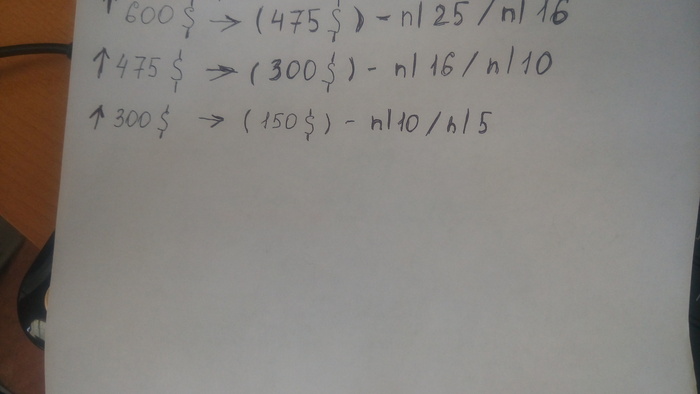 ↑ 600 $ → (475 $) - nl 25 / nl 16
↑ 475 $ → (300 $) - nl 16 / nl 10
↑ 300 $ → (150 $) - nl 10 / nl 5